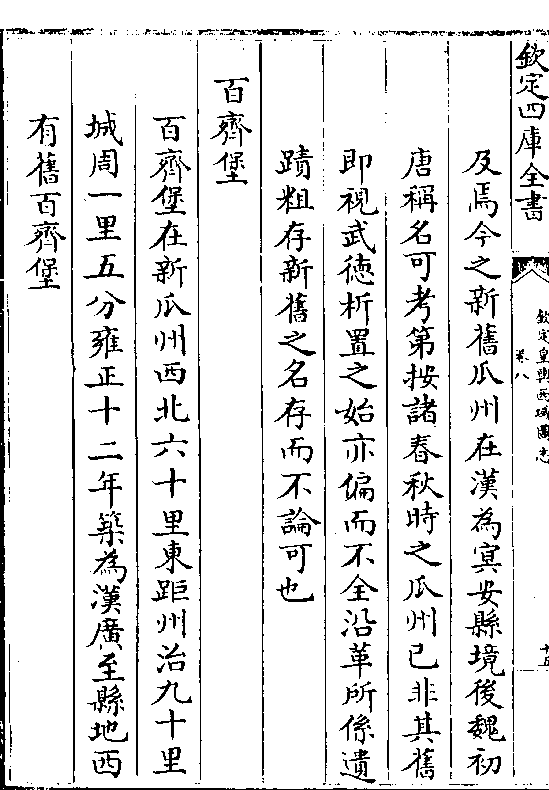 欽定四庫全書
欽定皇輿西域圖志
卷八
十五
及焉今之新舊瓜州在漢為冥安縣境後魏初
唐稱名可考第按諸春秋時之瓜州已非其舊
即視武德析置之始亦偏而不全沿革所係遺
蹟粗存新舊之名存而不論可也
百齊堡
百齊堡在新瓜州西北六十里東距州治九十里
城周一里五分雍正十二年築為漢廣至縣地西
有舊百齊堡